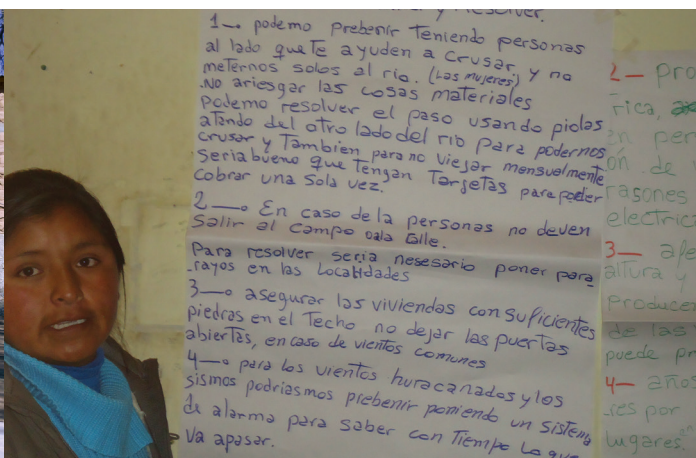 y resolver.
1 — podemo prebenir Teniendo personas
al lado que Te ayuden a crusar, y no
meternos solos al río. (Las mujeres)
.No ariesgar las cosas materiales
podemo resolver el paso usando piolas
atando del otro lado del rio para podernos
crusar y Tambien para no viejar mensualmente
Seria bueno que Tengan Tarjetas para poder
cobrar una sola vez.
2 — En caso de la personas no deven
Salir al campo oala Calle.
Para resolver seria nesesario poner para
rayos en las Localidades
3 — asegurar las viviendas con suficientes
piedras en el Techo no dejar las puertas
abiertas, en caso de vientos comunes
4 — para los vientos huracanados y los
sismos podriasmos prebenir poniendo un sistema
de alarma para saber con Tiempo Lo que
va apasar.
2 — pro
rica,
en per
ón de
rasones
electric
3 — afe
altura y
Producen
de las
puede pr
4 — años
res por
lugares.